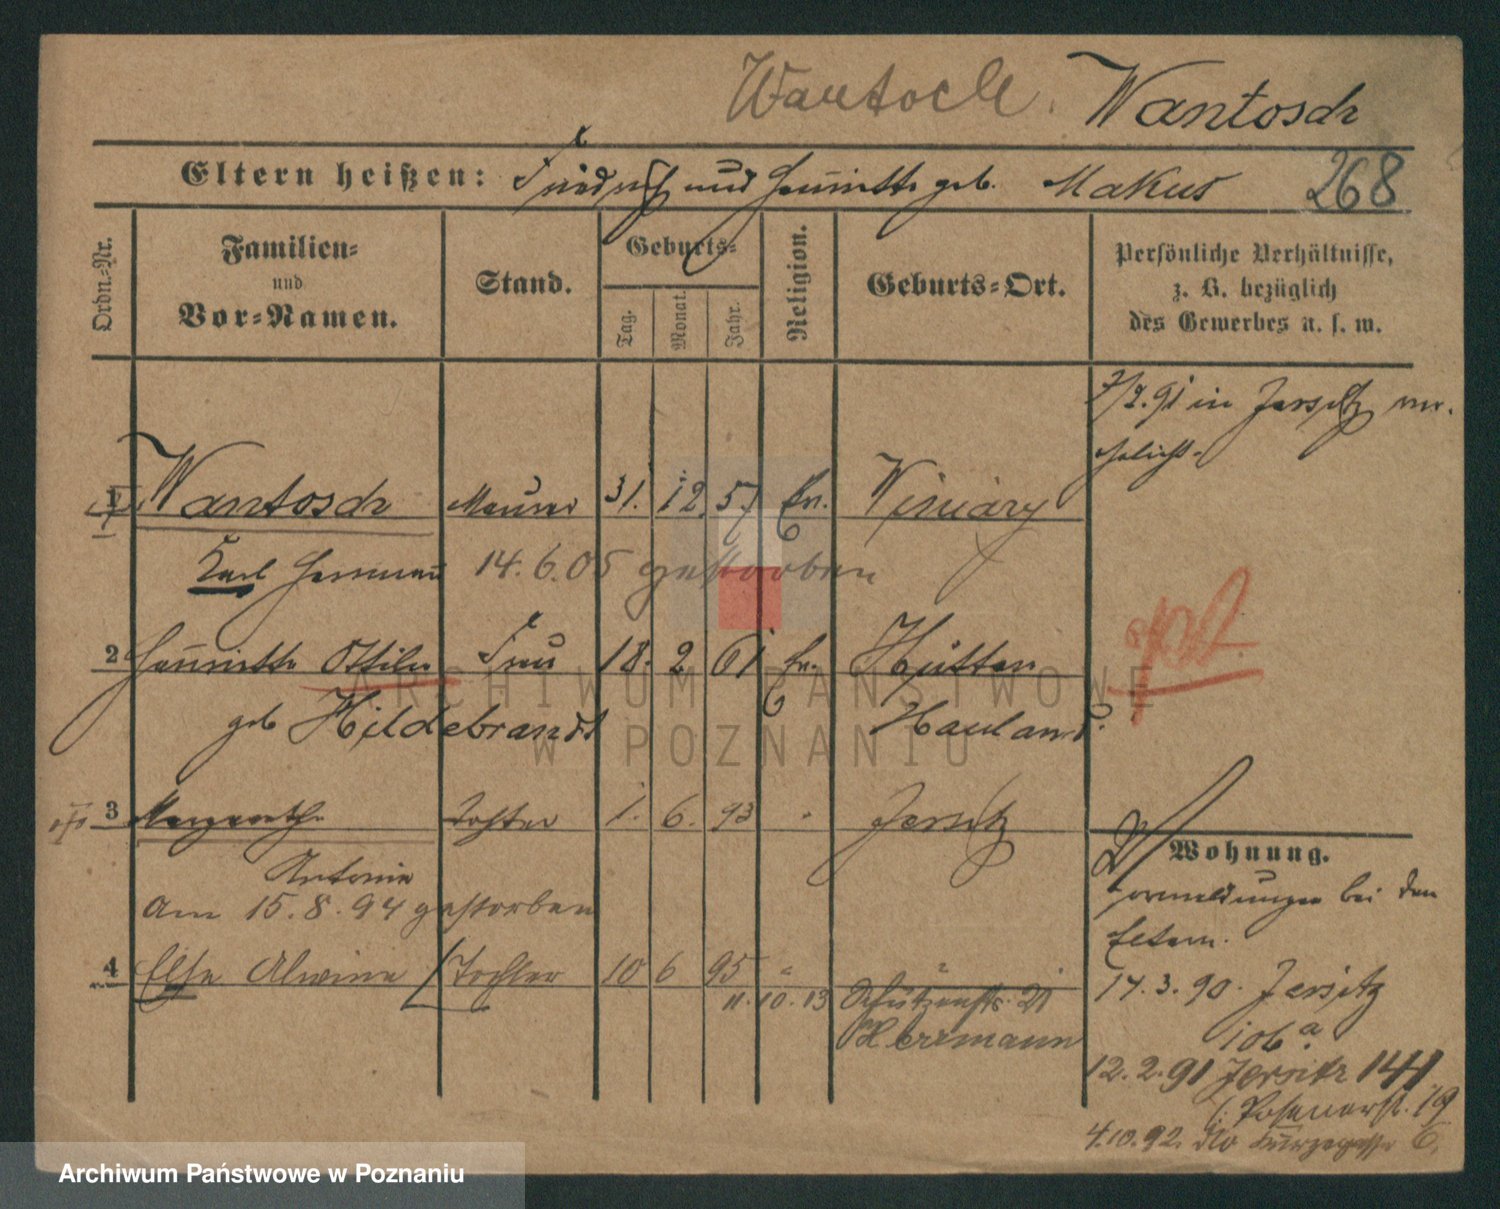 Wantoch. Wantosch
Eltern heißen: Friedrich und Henriette geb. Makus 268
Ordn.-Nr. Familien- und Vor-Namen. Stand. Geburts- Tag. Monat. Jahr. Religion. Geburts-Ort. Persönliche Verhältnisse, z. B. bezüglich des Gewerbes u. s. w.
7/2.91 in Jersitz ver-
ehelicht.
1 Wantosch Maurer 31. 12. 57 Ev. Winiary
Karl Hermann 14.6.05 gestorben
gest.
2 Henriette Ottilie Frau 18. 2 61 Ev. Hütten
geb Hildebrandt Hauland.
3 Margarethe Tochter 1. 6. 93 " Jersitz
Antonie
Am 15.8.94 gestorben
4 Else Alwine Tochter 10 6 95 " "
11.10.13 Schützenstr. 21
Herrmann
Wohnung.
Vormeldungen bei den
Eltern.
17.3.90. Jersitz
106a.
12.2.91 Jersitz 141
(: Posenerstr. 19
4.10.92. dto Kurzegasse 6.
ARCHIWUM PAŃSTWOWE
W POZNANIU
Archiwum Państwowe w Poznaniu